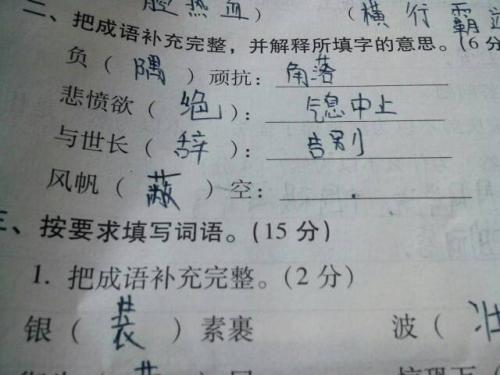 腔热血） （横行霸道
二、把成语补充完整，并解释所填字的意思。（6分
负（隅）顽抗：角落
悲愤欲（绝）：气息中止
与世长（辞）：告别
风帆（蔽）空：
三、按要求填写词语。（15分）
1. 把成语补充完整。（2分）
银（装）素裹 波（壮